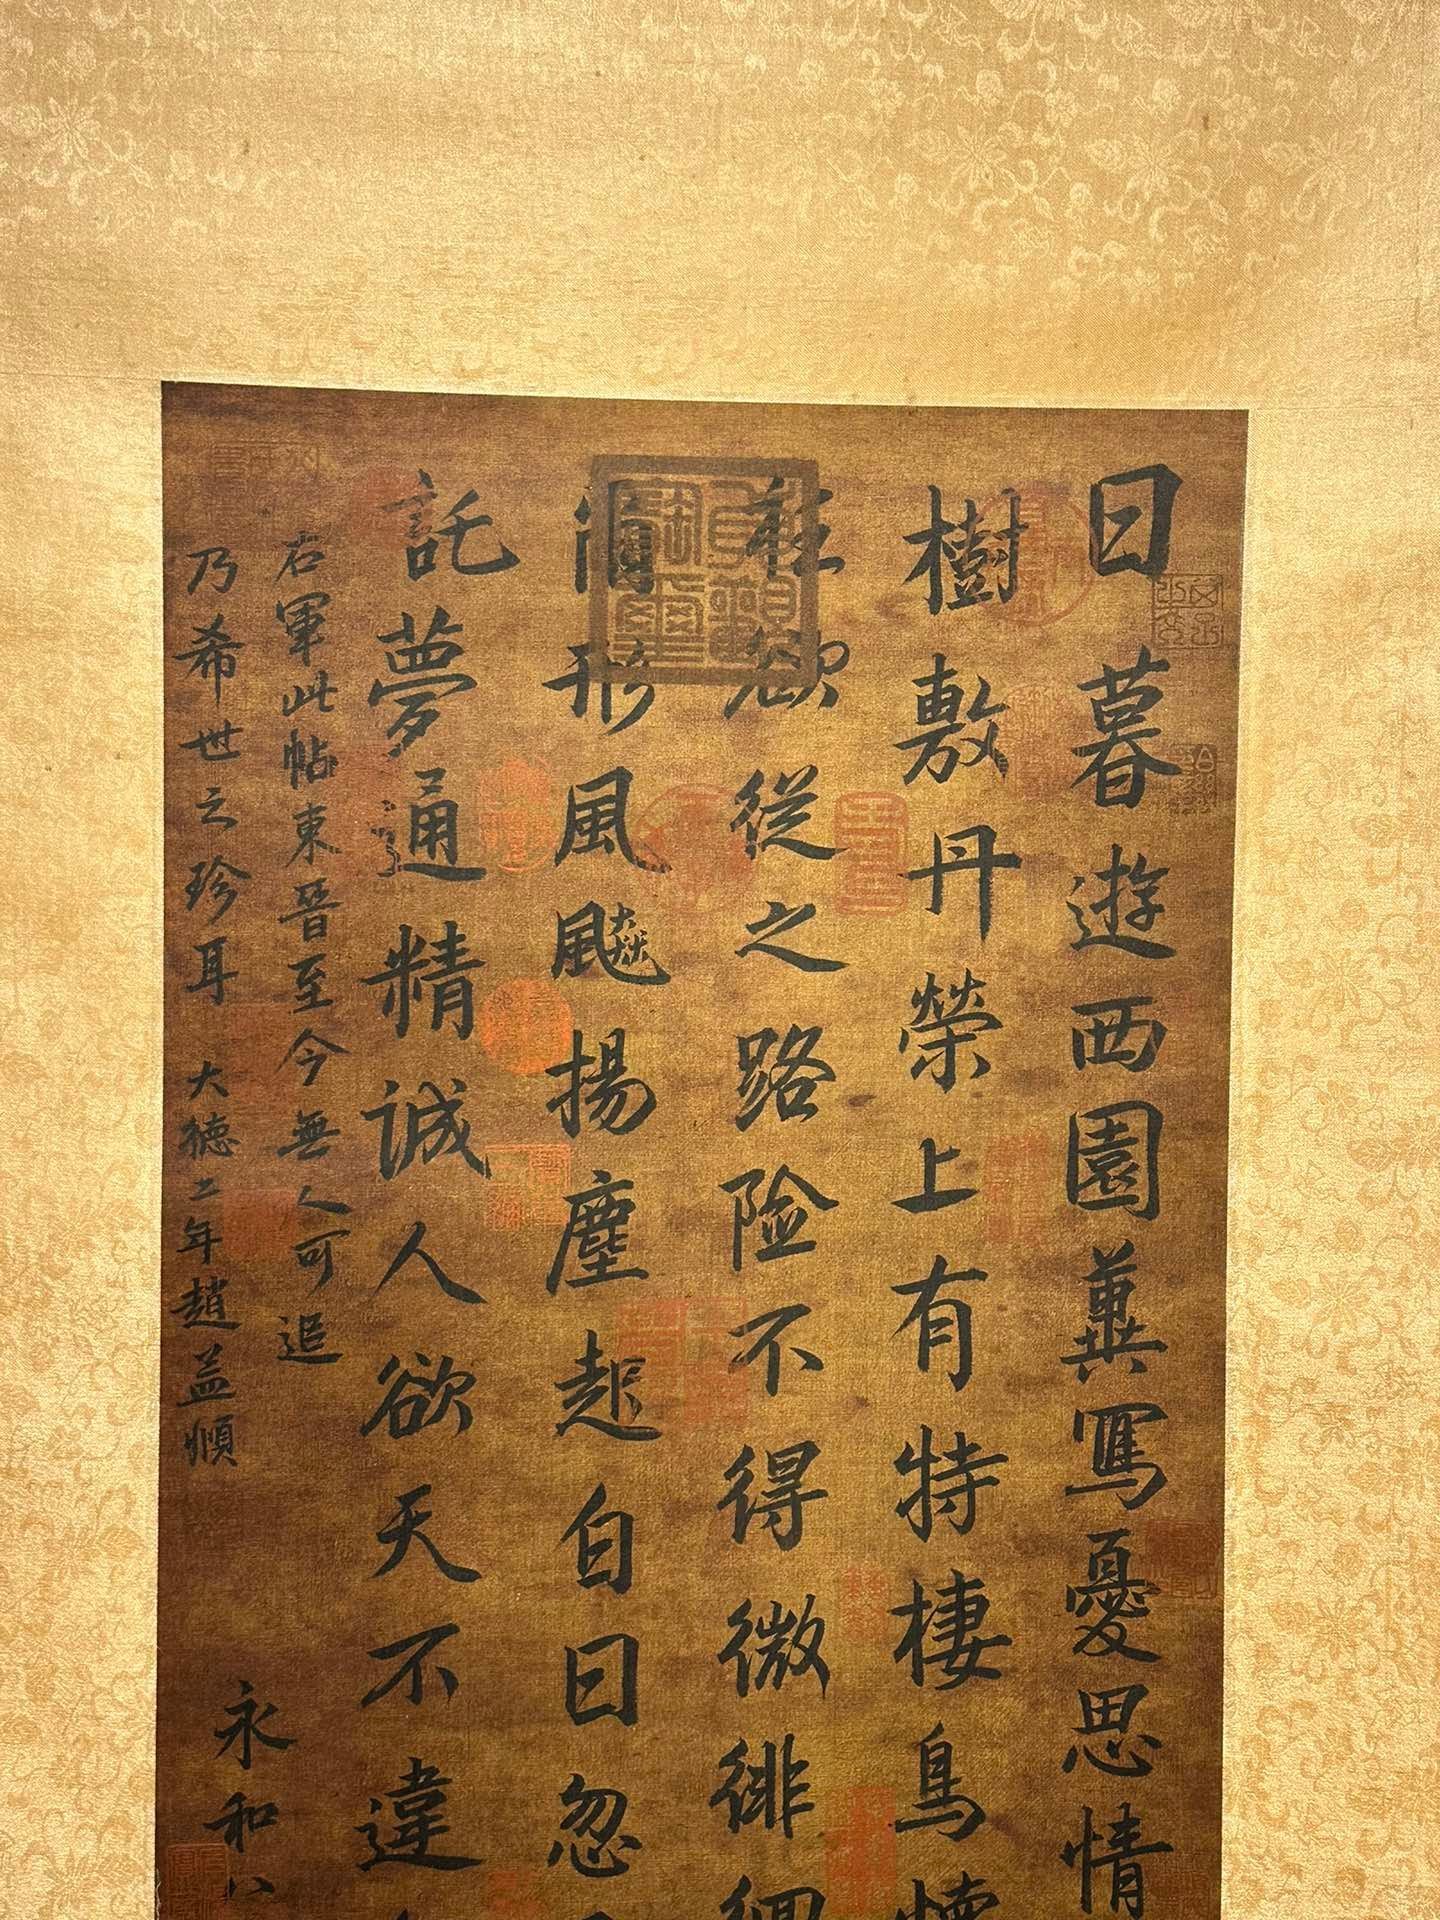 日暮遊西園冀寫憂思情
樹敷丹榮上有特棲鳥
枉欲從之路险不得微徘徊
形風飈揚塵起白日忽
託夢通精誠人欲天不違
右軍此帖東晉至今無人可追
乃希世之珍耳 大德二年趙孟頫
永和八